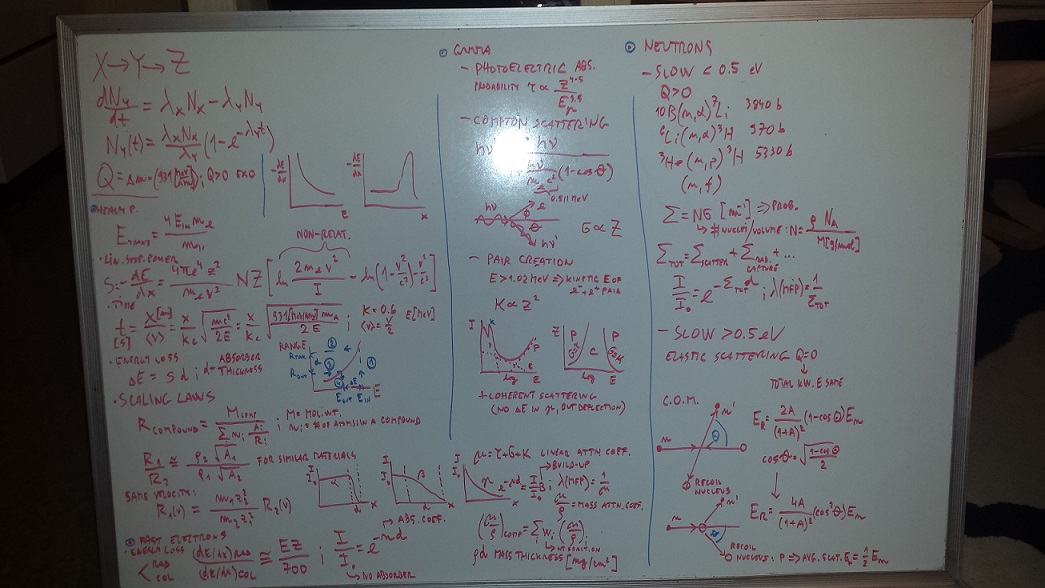 X→Y→Z
dN_Y/dt = λ_X N_X - λ_Y N_Y
N_Y(t) = λ_X N_X / λ_Y (1 - e^{-λ_Y t})
; Q>0 EXO
-dE/dx
E
-dE/dx
x
HEAVY P.
E_1max = 4 E_kin m_e / m_H
NON-RELAT.
· LIN. STOP. POWER
S = -dE/dx = 4πe⁴z² / m_e v² NZ [ln 2m_e v² / I - ln(1 - v²/c²) - v²/c²]
· TIME
t [s] = X [m] / ⟨v⟩ = x / kc √(mc² / 2E) = x / kc √(931 [MeV/amu] m_A / 2E) ; K = 0.6 ⟨v⟩ = v/2 E [MeV]
RANGE
E_OUT E_IN
E
· ENERGY LOSS
ΔE = S d ; d = ABSORBER THICKNESS
· SCALING LAWS
R_COMPOUND = M_COMP / Σ N_i A_i / R_i ; M = MOL. WT. N_i = # OF ATOMS IN A COMPOUND
R_1 / R_2 ≅ ρ_2 √A_1 / ρ_1 √A_2 FOR SIMILAR MATERIALS
SAME VELOCITY:
R_1(v) = m_1 z_2² / m_2 z_1² R_2(v)
FAST ELECTRONS
· ENERGY LOSS
< RAD
COL
(dE/dx)RAD / (dE/dx)COL ≅ EZ / 700 ; I / I_0 = e^{-nd}
→ ABS. COEF.
→ NO ABSORDER
I / I_0
d
x
I / I_0
β
x
I / I_0
x
GAMMA
- PHOTOELECTRIC ABS.
PROBABILITY τ ∝ Z^{4-5} / E_γ^{3.5}
- COMPTON SCATTERING
hν' = hν / (1 + hν / m_e c² (1 - cos θ))
0.511 MeV
hν
e
φ
θ
hν'
σ ∝ Z
- PAIR CREATION
E > 1.02 MeV ⇒ KINETIC E OF e⁻ - e⁺ PAIR
K ∝ Z²
I
K
P
Log E
Z
P
C
P
Log E
+ COHERENT SCATTERING
(NO ΔE IN γ, BUT DEFLECTION)
μ = τ + σ + K LINEAR ATTN COEF.
→ BUILD-UP
e^{-μd} = I / I_0 B ; λ(MFP) = 1/μ
μ/ρ = MASS ATTN. COEF.
(μ/ρ)_COMP = Σ_i W_i (μ/ρ)_i
ρd MASS THICKNESS [mg/cm²]
NEUTRONS
- SLOW < 0.5 eV
Q>0
10B(n,α)⁷Li 3840 b
⁶Li(n,α)³H 970 b
³He(n,p)³H 5330 b
(n,f)
Σ = Nσ [m⁻¹] ⇒ PROB.
↳ # NUCLEI/VOLUME : N = ρ N_A / M [g/mol]
Σ_TOT = Σ_SCATTER + Σ_RAD. CAPTURE + ...
I / I_0 = e^{-Σ_TOT d} ; λ(MFP) = 1 / Σ_TOT
- SLOW > 0.5 eV
ELASTIC SCATTERING Q=0
TOTAL KIN. E SAME
C.O.M.
n
n'
θ
RECOIL NUCLEUS
E_R = 2A / (1+A)² (1 - cos θ) E_n
cos θ = √((1 - cos Θ) / 2)
n
n'
RECOIL NUCLEUS
E_R = 4A / (1+A)² (cos² θ) E_n
; P ⇒ AVG. SCAT. E_R = ½ E_n